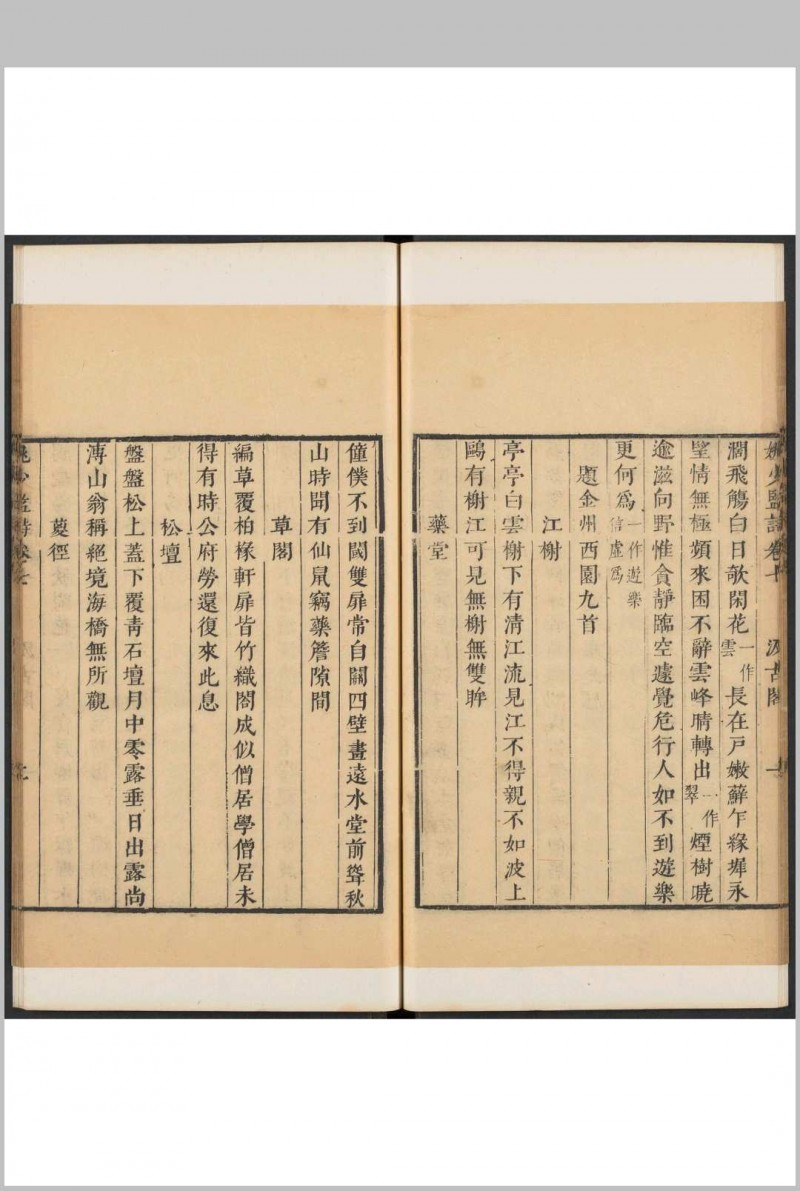 姚少監詩卷七　汲古閣
濶飛觴白日欹閑花一作雲長在戶嫩蘚乍緣墀永
望情無極頻來困不辭雲峰晴轉出一作翠煙樹曉
逾滋向野惟貪靜臨空遽覺危行人如不到遊樂
更何爲一作遊樂信虛爲
題金州西園九首
江榭
亭亭白雲榭下有清江流見江不得親不如波上
鷗有榭江可見無榭無雙眸
藥堂
僮僕不到閾雙扉常自關四壁畫遠水堂前聳秋
山時聞有仙鼠竊藥簷隙間
草閣
編草覆柏椽軒扉皆竹織閣成似僧居學僧居未
得有時公府勞還復來此息
松壇
盤盤松上蓋下覆青石壇月中零露垂日出露尚
漙山翁稱絕境海橋無所觀
蔓徑
姚少監詩卷七